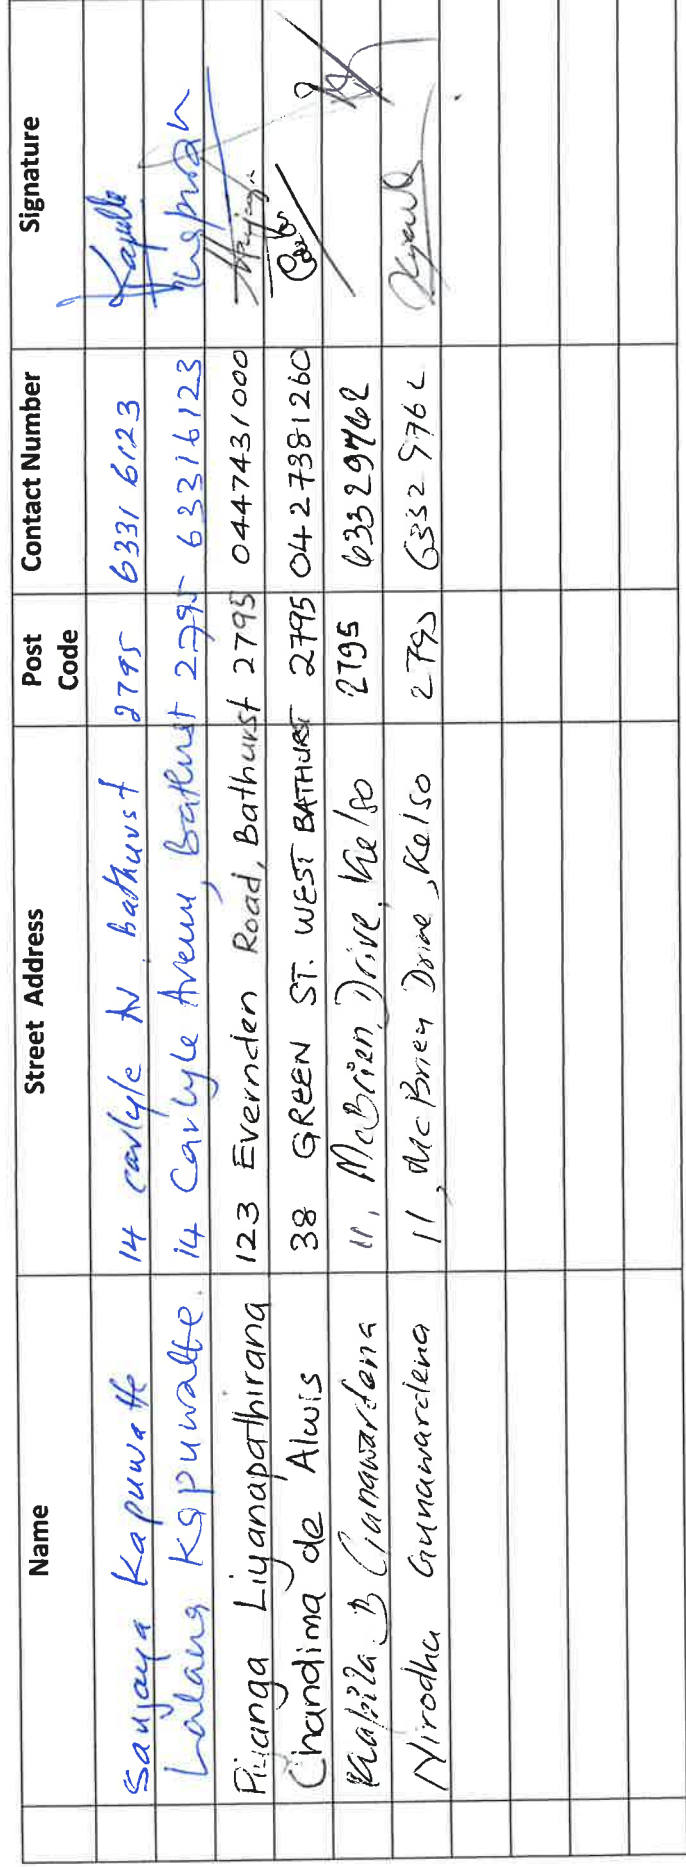 Name Street Address Post Code Contact Number Signature
Sanjaya Kapuwatte 14 Carlyle Av bathurst 2795 6331 6123
Lalana Kapuwatte. 14 Carlyle Avenu, Bathurst 2795 63316123
Piyanga Liyanapathirana 123 Evernden Road, Bathurst 2795 0447431000
Chandima de Alwis 38 GREEN ST. WEST BATHURST 2795 0427381260
Kapila B Gunawardana 11, McBrien Drive, Kelso 2795 63329762
Nirodha Gunawardena 11, McBrien Drive, Kelso 2795 6332 9762